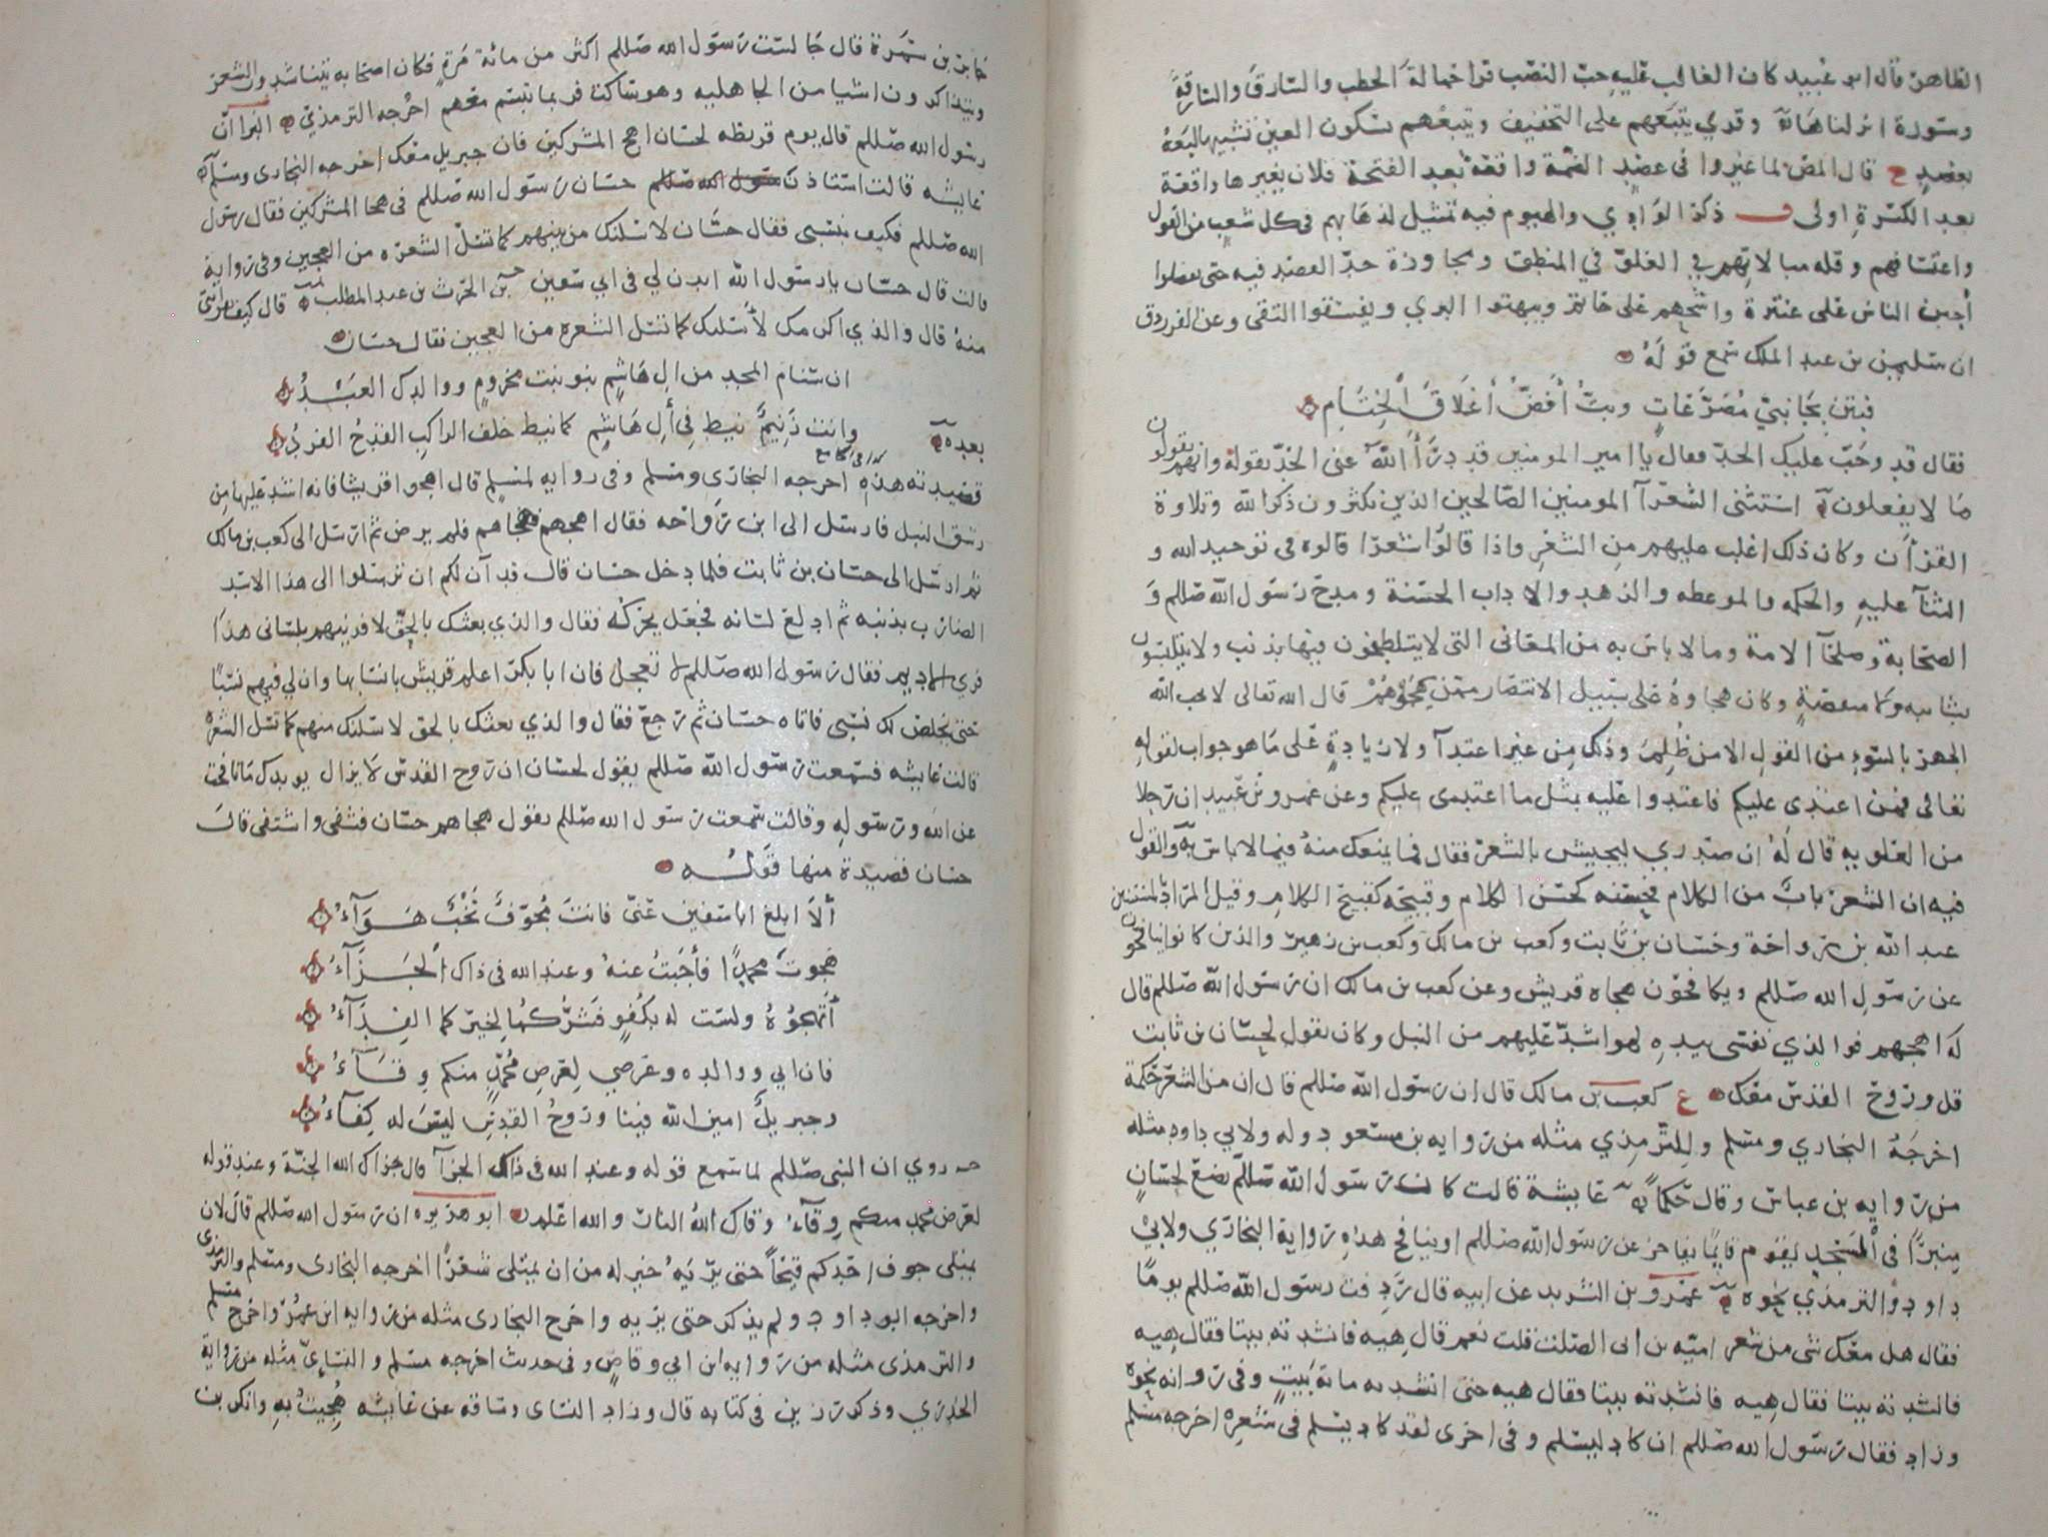 الظاهر قال ابو عبيد كان الغالب عليه حب النصب قرا حمالة الحطب والسارق والسارقة
وسورة انزلناها وقري يتبعهم على التخفيف ويتبعهم بسكون العين تشبيها ببعه
بعضد ح قال المص لما غيروا في عضد الضمة واقعة بعد الفتحة فلان يغيرها واقعة
بعد الكسرة اولى ف ذكر الوادي والهيوم فيه تمثيل لذهابهم في كل شعب من القول
واعتسافهم وقله مبالاتهم في الغلو في المنطق ومجاوزة حد القصد فيه حتى يفضلوا
أجبن الناس على عنترة واشحهم على حاتم ويبهتوا البري ويفسقوا التقى وعن الفرزدق
ان سليمن بن عبد الملك سمع قوله
فبتن بجانبيّ مصرّعات وبتّ أفضّ أغلاق الختام
فقال قد وجب عليك الحد فقال يا امير المومنين قد درأ الله عنى الحد بقوله وانهم يقولون
ما لا يفعلون استثنى الشعرآ المومنين الصالحين الذين يكثرون ذكر الله وتلاوة
القرأن وكان ذلك اغلب عليهم من الشعر واذا قالوا شعرا قالوه في توحيد الله و
الثنآ عليه والحكمه والموعظه والزهد والاداب الحسنة ومدح رسول الله صللم و
الصحابة وصلحآ الامة وما لا باس به من المعاني التي لا يتلطخون فيها بذنب ولا يتلبسون
بشايبه ولا منقصة وكان هجاوه على سبيل الانتصار ممن يهجوهم قال الله تعالى لا يحب الله
الجهر بالسوء من القول الا من ظلم وذلك من غير اعتدآ ولا زيادة على ما هو جواب لقوله
تعالى فمن اعتدى عليكم فاعتدوا عليه بمثل ما اعتدى عليكم وعن عمرو بن عبيد ان رجلا
من العلويه قال له ان صدري ليجيش بالشعر فقال فما يمنعك منه فيما لا باس به والقول
فيه ان الشعر باب من الكلام فحسنه كحسن الكلام وقبيحه كقبيح الكلام وقيل المراد بالمستثنين
عبد الله بن رواحة وحسان بن ثابت وكعب بن مالك وكعب بن زهير والذين كانوا ينافحون
عن رسول الله صللم ويكافحون هجاه قريش وعن كعب بن مالك ان رسول الله صللم قال
له اهجهم فوالذي نفسى بيده لهو اشد عليهم من النبل وكان يقول لحسان بن ثابت
قل وروح القدس معك ع كعب بن مالك قال ان رسول الله صللم قال ان من الشعر حكمة
اخرجه البخاري ومسلم وللترمذي مثله من روايه بن مسعود وله ولابي داود مثله
من روايه بن عباس وقال حكما عايشة قالت كان رسول الله صللم يضع لحسان
منبرا في المسجد يقوم قايما يفاخر عن رسول الله صللم او ينافح هذه رواية البخاري ولابي
داود والترمذي نحوه عمرو بن الشريد عن ابيه قال ردفت رسول الله صللم يوما
فقال هل معك شى من شعر اميه بن ابى الصلت قلت نعم قال هيه فانشدته بيتا فقال هيه
فانشدته بيتا فقال هيه فانشدته بيتا فقال هيه حتى انشدته مائة بيت وفى روايه نحوه
وزاد فقال رسول الله صللم ان كاد ليسلم وفى اخرى لقد كاد يسلم في شعره اخرجه مسلم
جابر بن سمرة قال جالست رسول الله صللم اكثر من مائة مرة فكان اصحابه يتناشدون الشعر
ويتذاكرون اشيا من الجاهليه وهو ساكت فربما تبسم معهم اخرجه الترمذي البرا ان
رسول الله صللم قال يوم قريظه لحسان اهج المشركين فان جبريل معك اخرجه البخارى ومسلم
عايشه قالت استاذن حسان رسول الله صللم في هجا المشركين فقال رسول
الله صللم فكيف بنسبى فقال حسان لاسلنك منهم كما تسل الشعره من العجين وفى رواية
قالت قال حسان يا رسول الله ايذن لي في ابي سفين بن الحرث بن عبد المطلب قال كيف بقرابتى
منه قال والذي اكرمك لأسلنك كما تسل الشعره من العجين فقال حسان
ان سنام المجد من ال هاشم بنو بنت مخزوم ووالدك العبد
بعده وانت زنيم نيط في أل هاشم كما نيط خلف الراكب القدح الفرد
قصيدته هذه اخرجه البخاري ومسلم وفى روايه لمسلم قال اهجوا قريشا فانه اشد عليها من
رشق النبل فارسل الى ابن رواحه فقال اهجهم فهجاهم فلم يرض ثم ارسل الى كعب بن مالك
ثم ارسل الى حسان بن ثابت فلما دخل حسان قال قد آن لكم ان ترسلوا الى هذا الاسد
الضارب بذنبه ثم ادلع لسانه فجعل يحركه فقال والذي بعثك بالحق لافرينهم بلسانى هذا
فري الاديم فقال رسول الله صللم لا تعجل فان ابا بكر اعلم قريش بانسابها وان لي فيهم نسبا
حتى يخلص لك نسبى فاتاه حسان ثم رجع فقال والذي بعثك بالحق لاسلنك منهم كما تسل الشعره
قالت عايشه فسمعت رسول الله صللم يقول لحسان ان روح القدس لا يزال يويدك ما نافحت
عن الله ورسوله وقالت سمعت رسول الله صللم يقول هجاهم حسان فشفى واشتفى قال
حسان قصيدة منها قوله
ألا ابلغ ابا سفين عنّى فانت مجوّف نخب هوآء
هجوت محمدا فأجبت عنه وعند الله فى ذاك الجزآء
أتهجوه ولست له بكفو فشركما لخيركما الفدآء
فان ابي ووالده وعرضي لعرض محمد منكم وقآء
وجبريل امين الله فينا وروح القدس ليس له كفآء
روي ان النبى صللم لما سمع قوله وعند الله فى ذاك الجزآ قال جزاك الله الجنة وعند قوله
لعرض محمد منكم وقآء وقاك الله النار والله اعلم ابو هريره ان رسول الله صللم قال لان
يمتلى جوف احدكم قيحا حتى يريه خير له من ان يمتلى شعرا اخرجه البخارى ومسلم والترمذى
واخرجه ابو داود ولم يذكر حتى يريه واخرج البخارى مثله من روايه ابن عمر واخرج مسلم
والترمذى مثله من روايه ابن ابي وقاص وفى حديث اخرجه مسلم والنسايى مثله من رواية
الخدري وذكر رزين في كتابه قال وزاد النساى وساقه عن عايشه هجيت به وانكرت